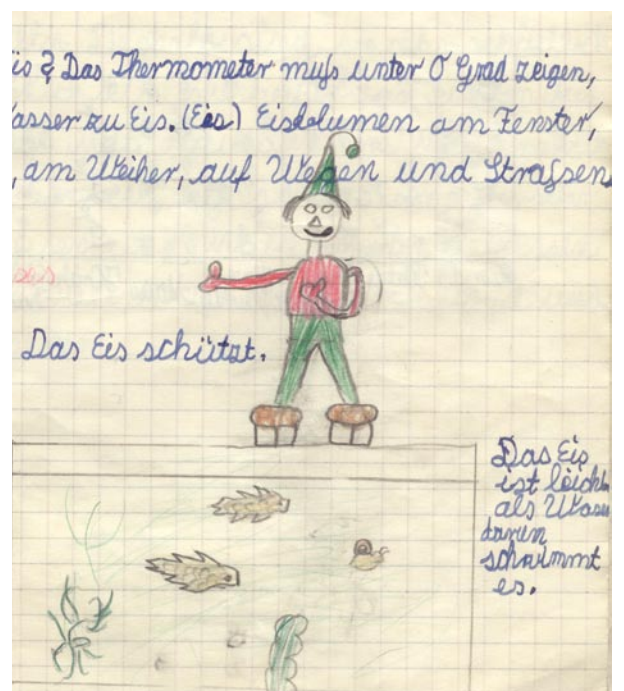 is? Das Thermometer muſs unter 0 Grad zeigen,
asser zu Eis. (Eis) Eisblumen am Fenster,
, am Weiher, auf Wegen und Straſsen
Das Eis schützt.
Das Eis
ist leichte
als Wasse
darum
schwimmt
es.